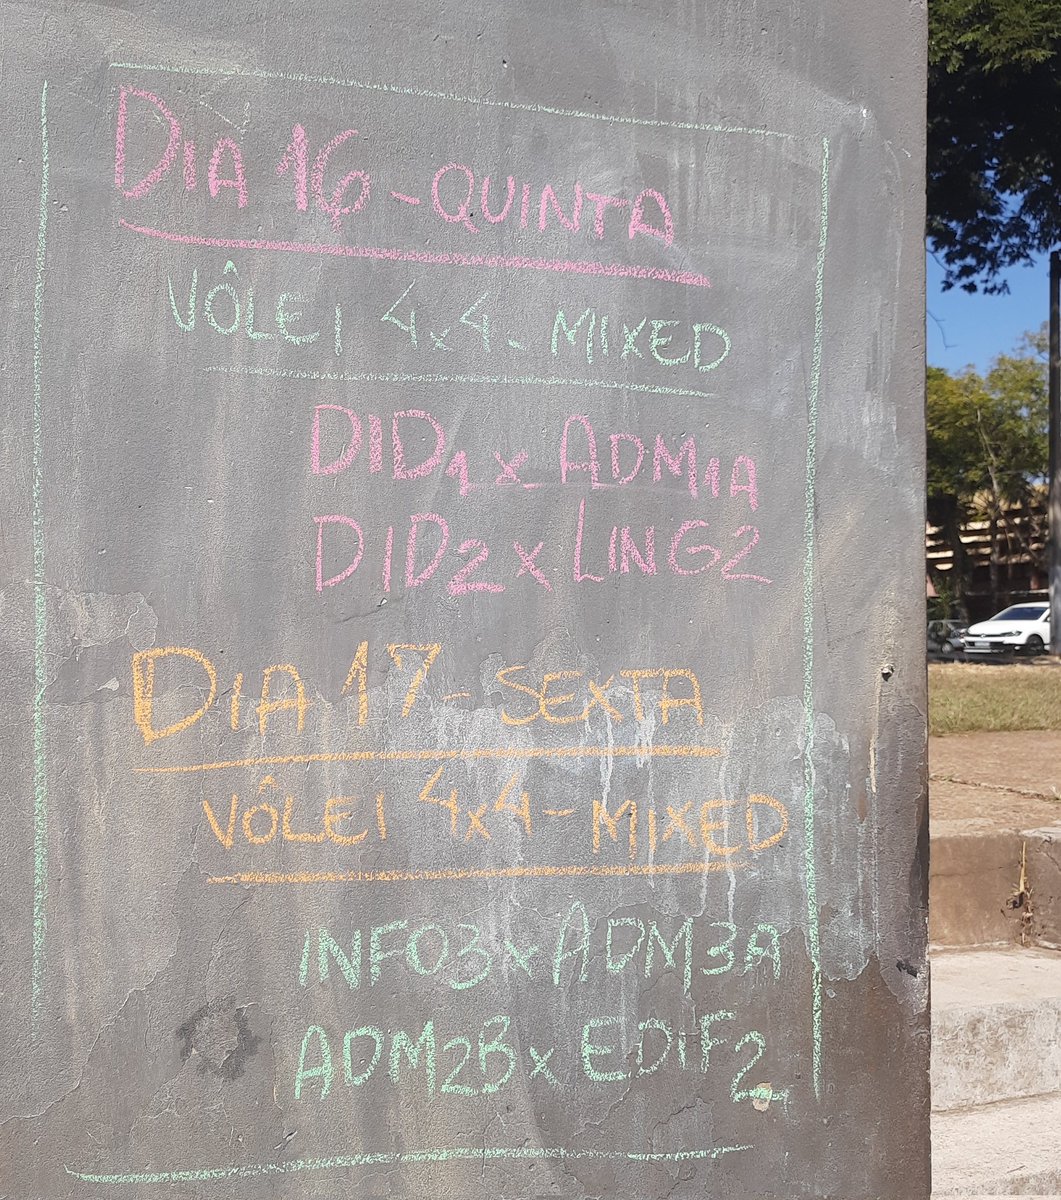 DIA 16 - QUINTA
VÔLEI 4x4 - MIXED
DID1 x ADM1A
DID2 x LING2
DIA 17 - SEXTA
VÔLEI 4x4 - MIXED
INFO3 x ADM3A
ADM2B x EDIF2